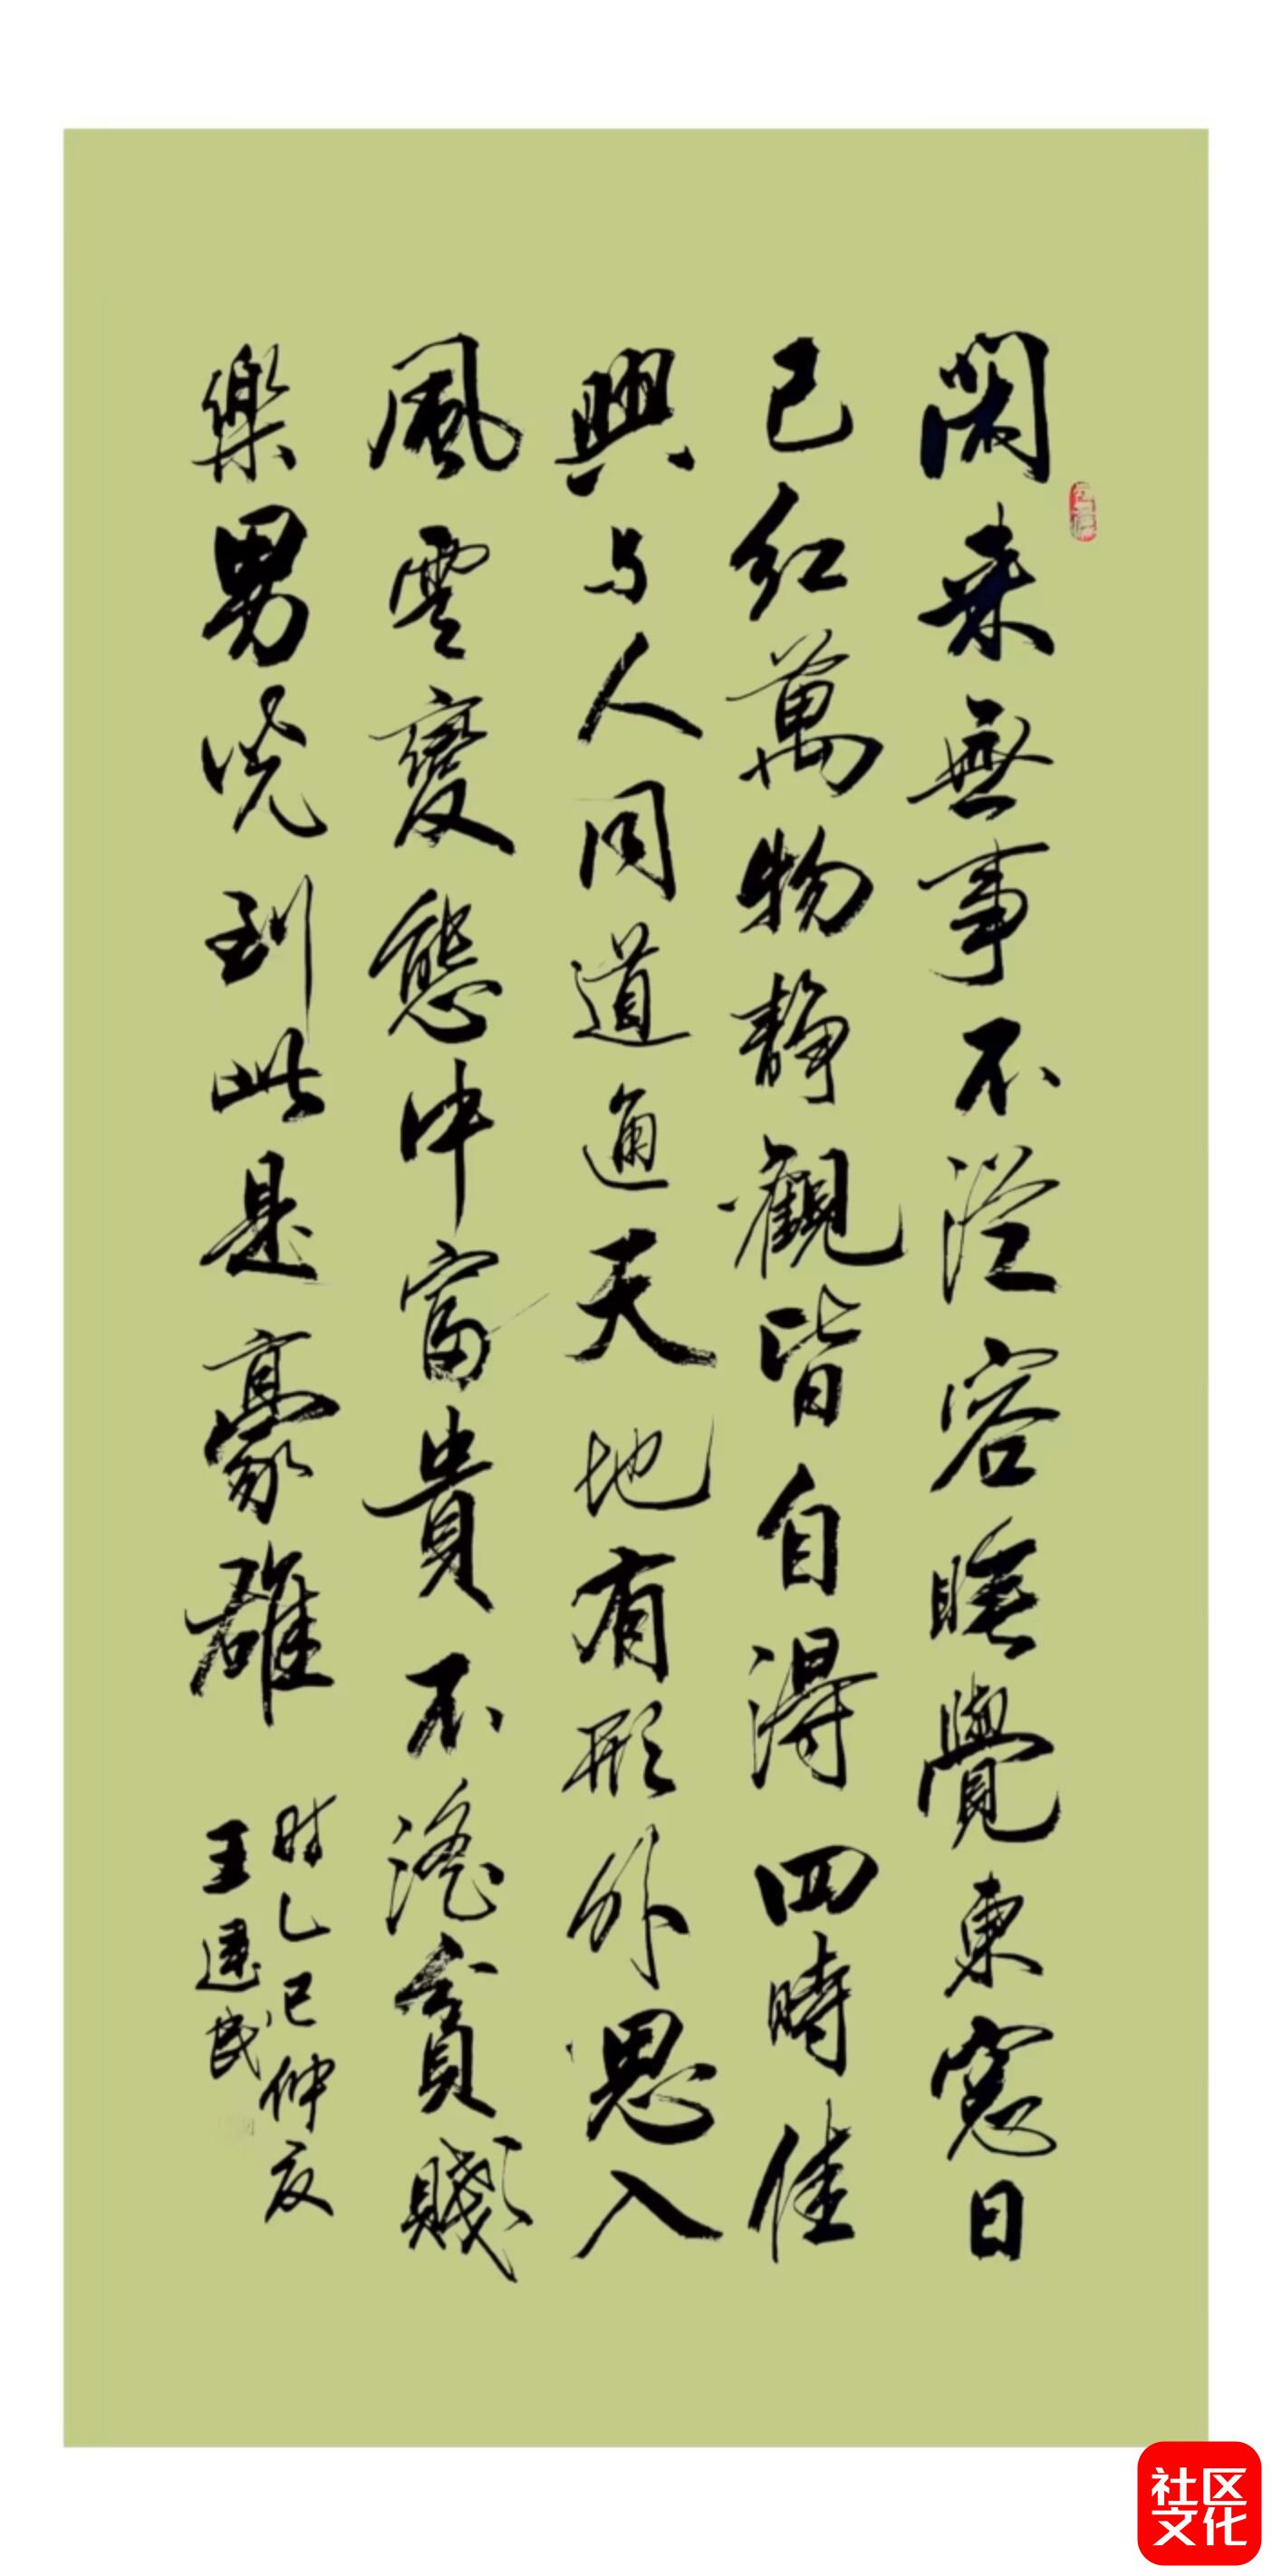 閑来無事不從容睡覺東窓日
已红萬物静觀皆自得四時佳
興与人同道通天地有形外思入
風雲變態中富貴不淫貧賤
樂男児到此是豪雄
时乙巳仲夏
王建民
社区
文化